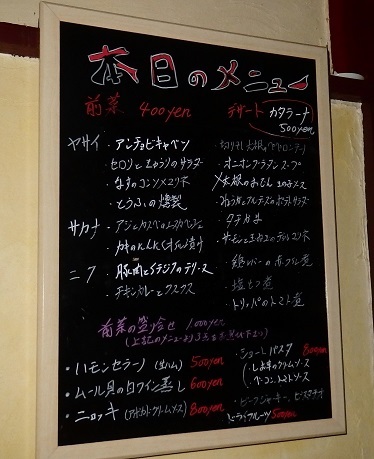 本日のメニュー
前菜 400yen
デザート カタラーナ
500yen
ヤサイ・アンチョビキャベツ
・セロリときゅうりのサラダ
・なすのコンソメヌリネ
・とうふの燻製
サカナ・アジと
・カキのにんにくオイル漬け
ニク・豚肉とイチジクのテリーヌ
・チキンカレーとクスクス
・切り干し大根のペペロンチーノ
・オニオングラタンスープ
・大根のおでん
・タテガミ
・サーモンと
・鶏レバーの赤ワイン煮
・塩モツ煮
・トリッパのトマト煮
前菜の盛合せ 1000yen
(上記のメニューより
・ハモンセラーノ (生ハム) 500yen
・ムール貝の白ワイン蒸し 600yen
・ニョッキ 800yen
・ショートパスタ 800yen
クリームソース
ベーコントマトソース
・ビーフジャーキー、
ドライフルーツ 500yen